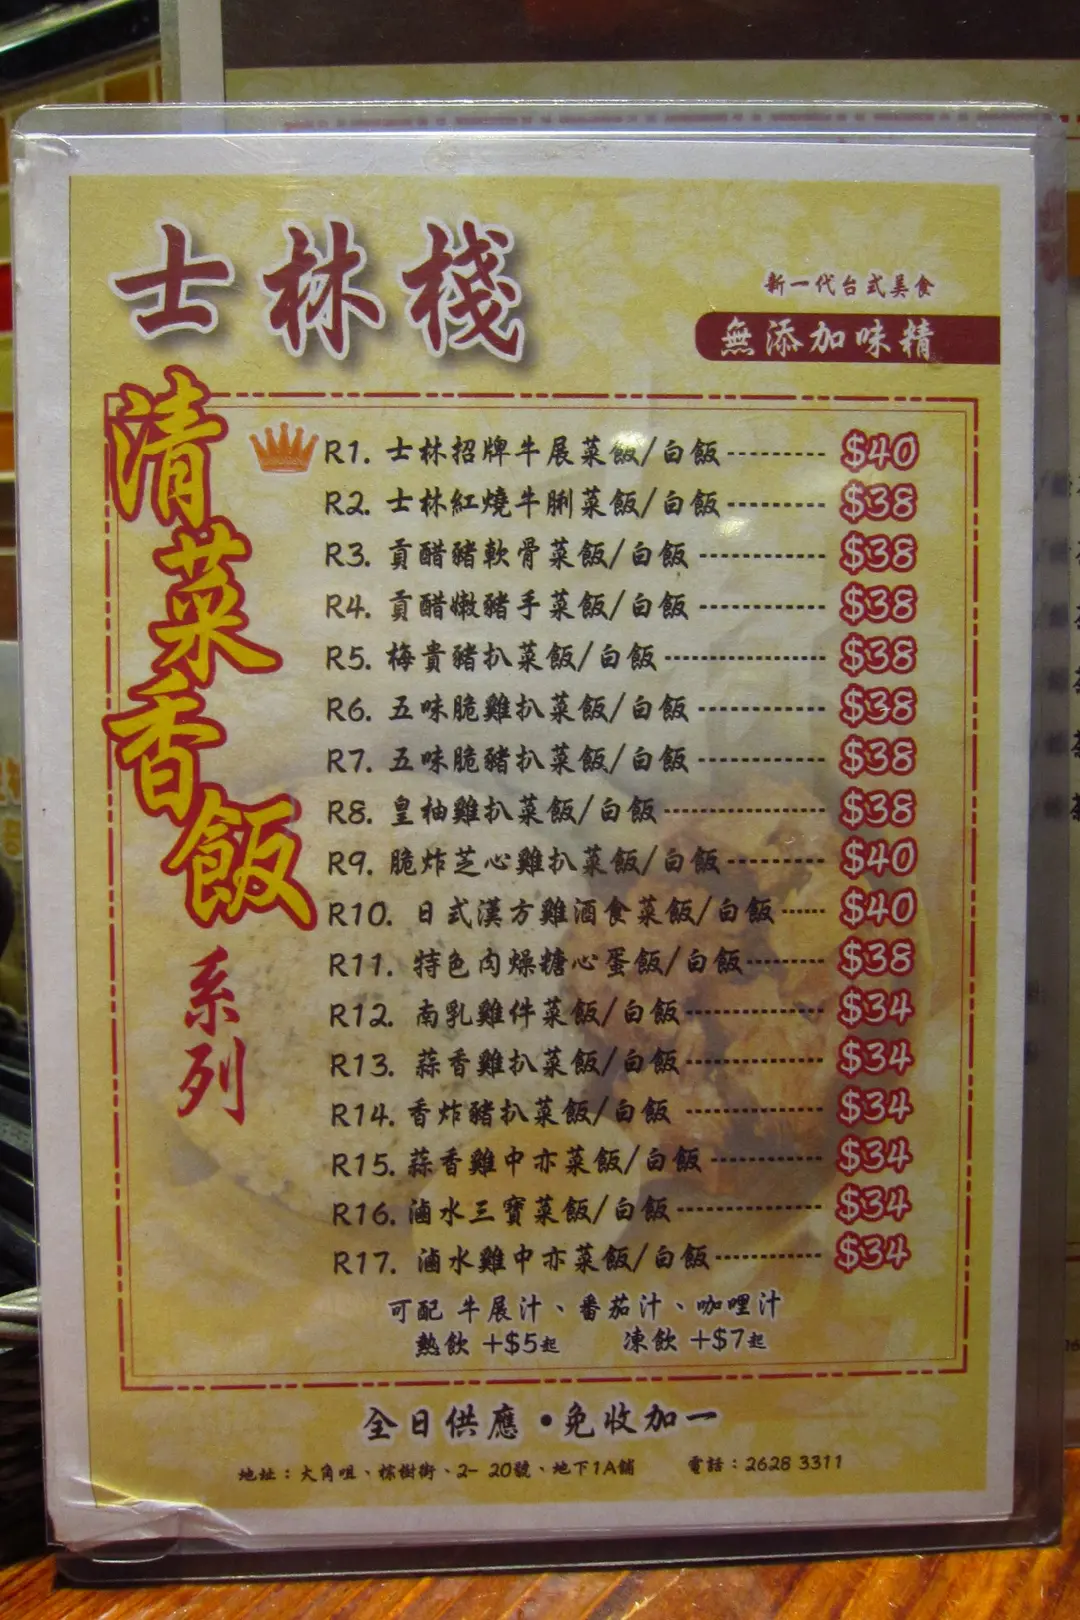 士林棧
新一代台式美食
無添加味精
清菜香飯系列
R1. 士林招牌牛展菜飯/白飯--------- $40
R2. 士林紅燒牛脷菜飯/白飯--------- $38
R3. 貢醋豬軟骨菜飯/白飯----------- $38
R4. 貢醋嫩豬手菜飯/白飯----------- $38
R5. 梅貴豬扒菜飯/白飯-------------- $38
R6. 五味脆雞扒菜飯/白飯----------- $38
R7. 五味脆豬扒菜飯/白飯----------- $38
R8. 皇柚雞扒菜飯/白飯-------------- $38
R9. 脆炸芝心雞扒菜飯/白飯-------- $40
R10. 日式漢方雞酒食菜飯/白飯----- $40
R11. 特色肉燥糖心蛋飯/白飯------- $38
R12. 南乳雞件菜飯/白飯------------- $34
R13. 蒜香雞扒菜飯/白飯------------- $34
R14. 香炸豬扒菜飯/白飯------------- $34
R15. 蒜香雞中亦菜飯/白飯---------- $34
R16. 滷水三寶菜飯/白飯------------- $34
R17. 滷水雞中亦菜飯/白飯---------- $34
可配 牛展汁、番茄汁、咖哩汁
熱飲 +$5起 凍飲 +$7起
全日供應•免收加一
地址：大角咀、棕樹街、2- 20號、地下1A舖 電話：2628 3311